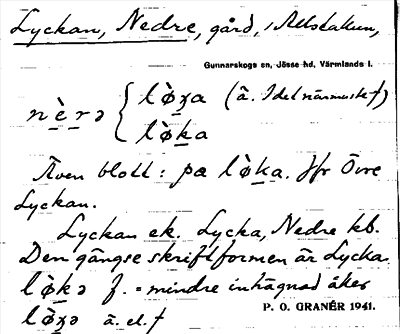 Lyckan, Nedre, gård, i Allstakun,
Gunnarskogs sn, Jösse hd, Värmlands l.
nèrə { lø̀ʒa (ä. I det närmaste †)
lø̀ka
Även blott: pa lø̀ka. Jfr Övre
Lyckan.
Lyckan ek. Lycka, Nedre kb.
Den gängse skriftformen är Lycka.
lø̀kə f. = mindre inhägnad åker
lø̀ʒə ä. el. †
P. O. GRANÉR 1941.